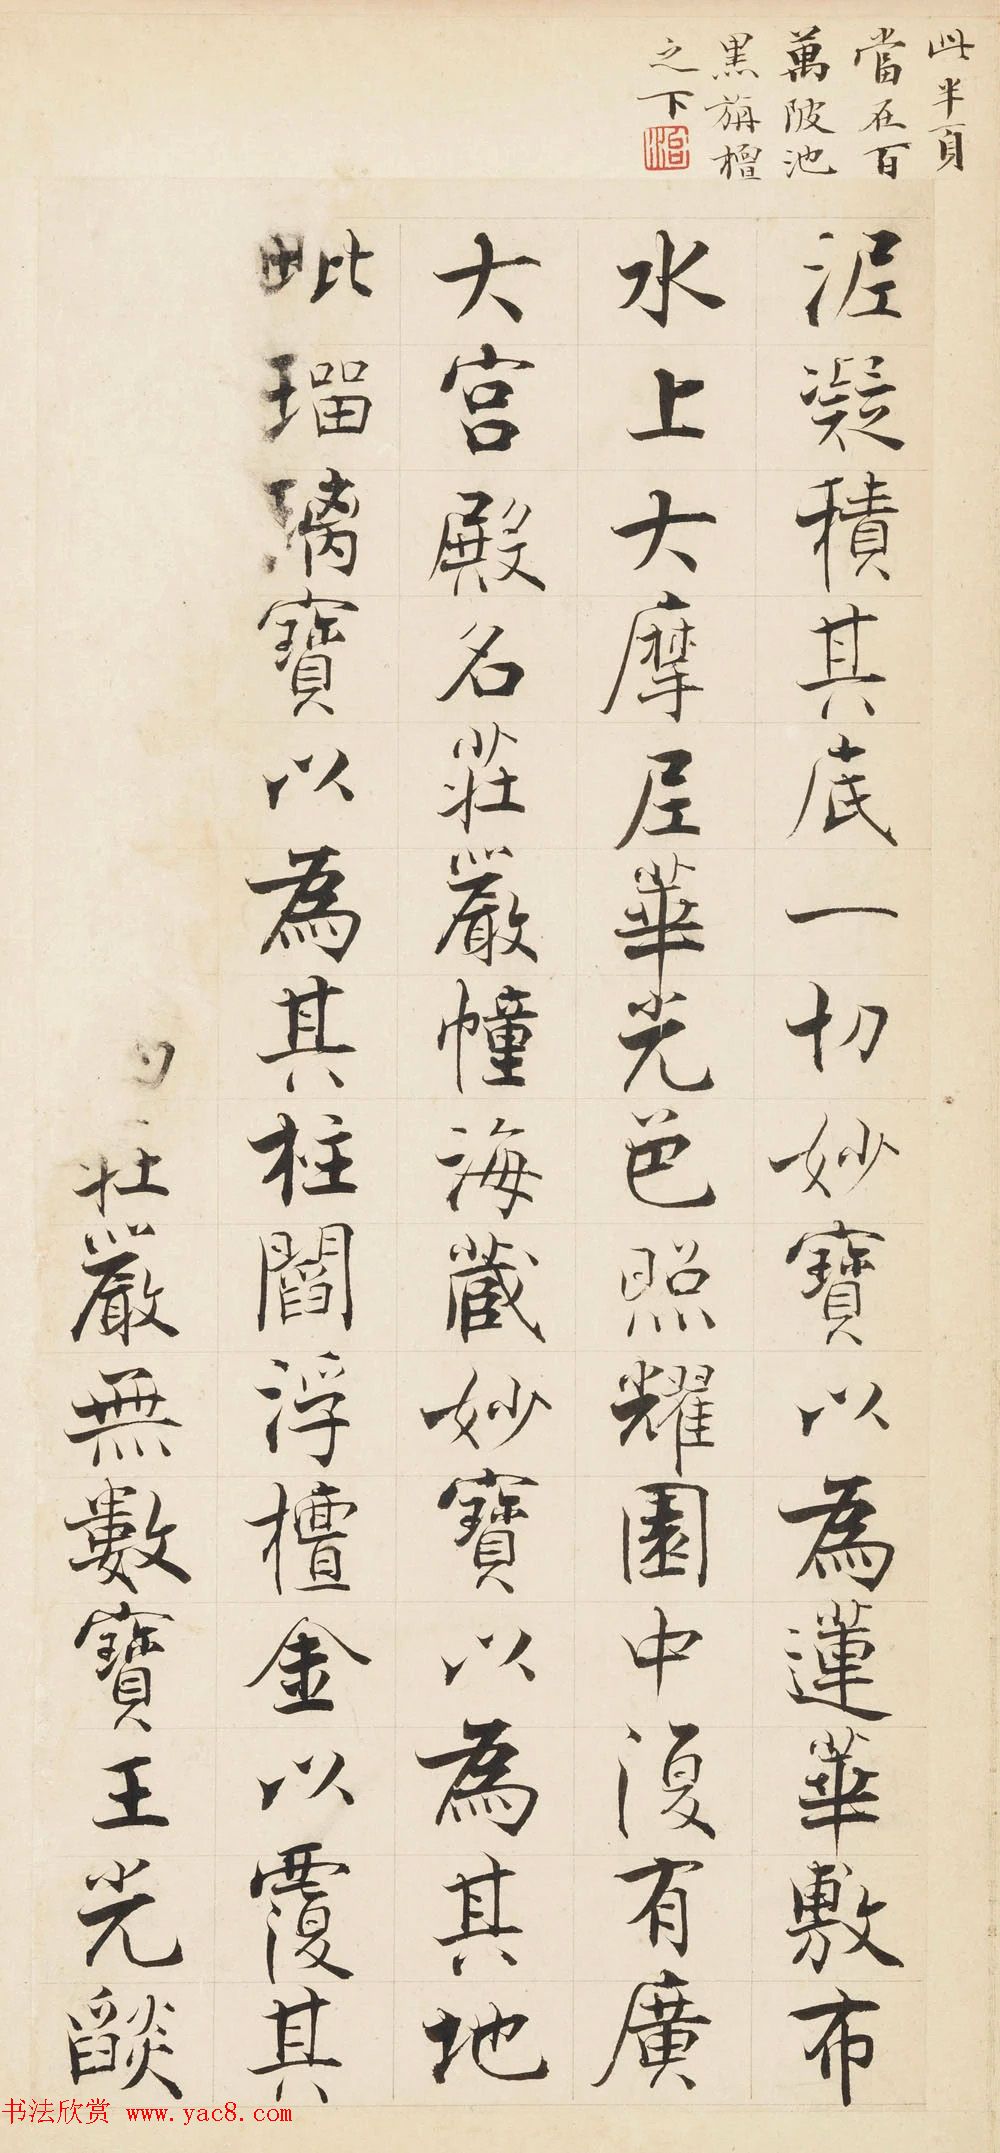 此半頁
當在百
萬陂池
黑旃檀
之下
泥凝積其底一切妙寶以為蓮華敷布
水上大摩尼華光色照耀園中復有廣
大宮殿名莊嚴幢海藏妙寶以為其地
毗瑠璃寶以為其柱閻浮檀金以覆其
莊嚴無數寶王光燄
书法欣赏 www.yac8.com